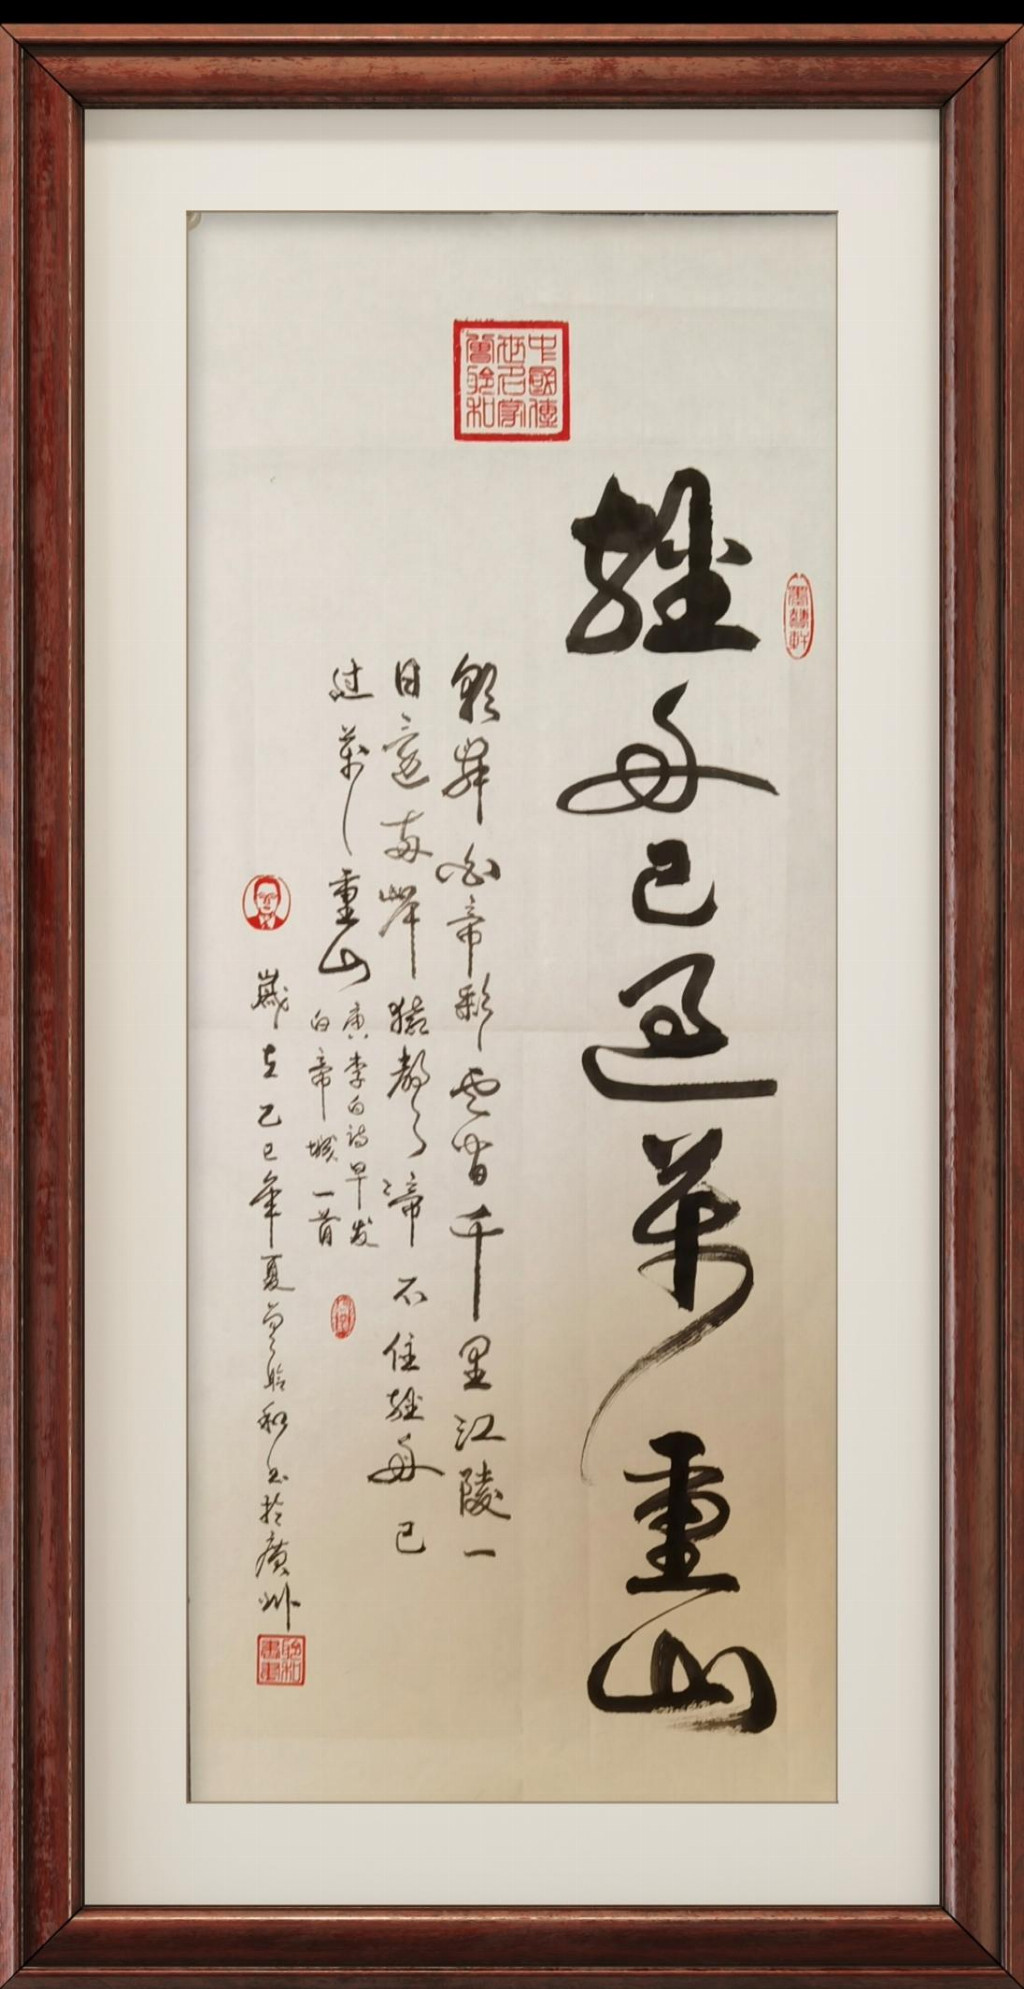 轻舟已过万重山
朝辞白帝彩云间千里江陵一
日还两岸猿声啼不住轻舟已
过万重山
唐李白诗早发
白帝城一首
岁在乙巳年夏曾聆和书于廣州
中國傳世名家曾聆和